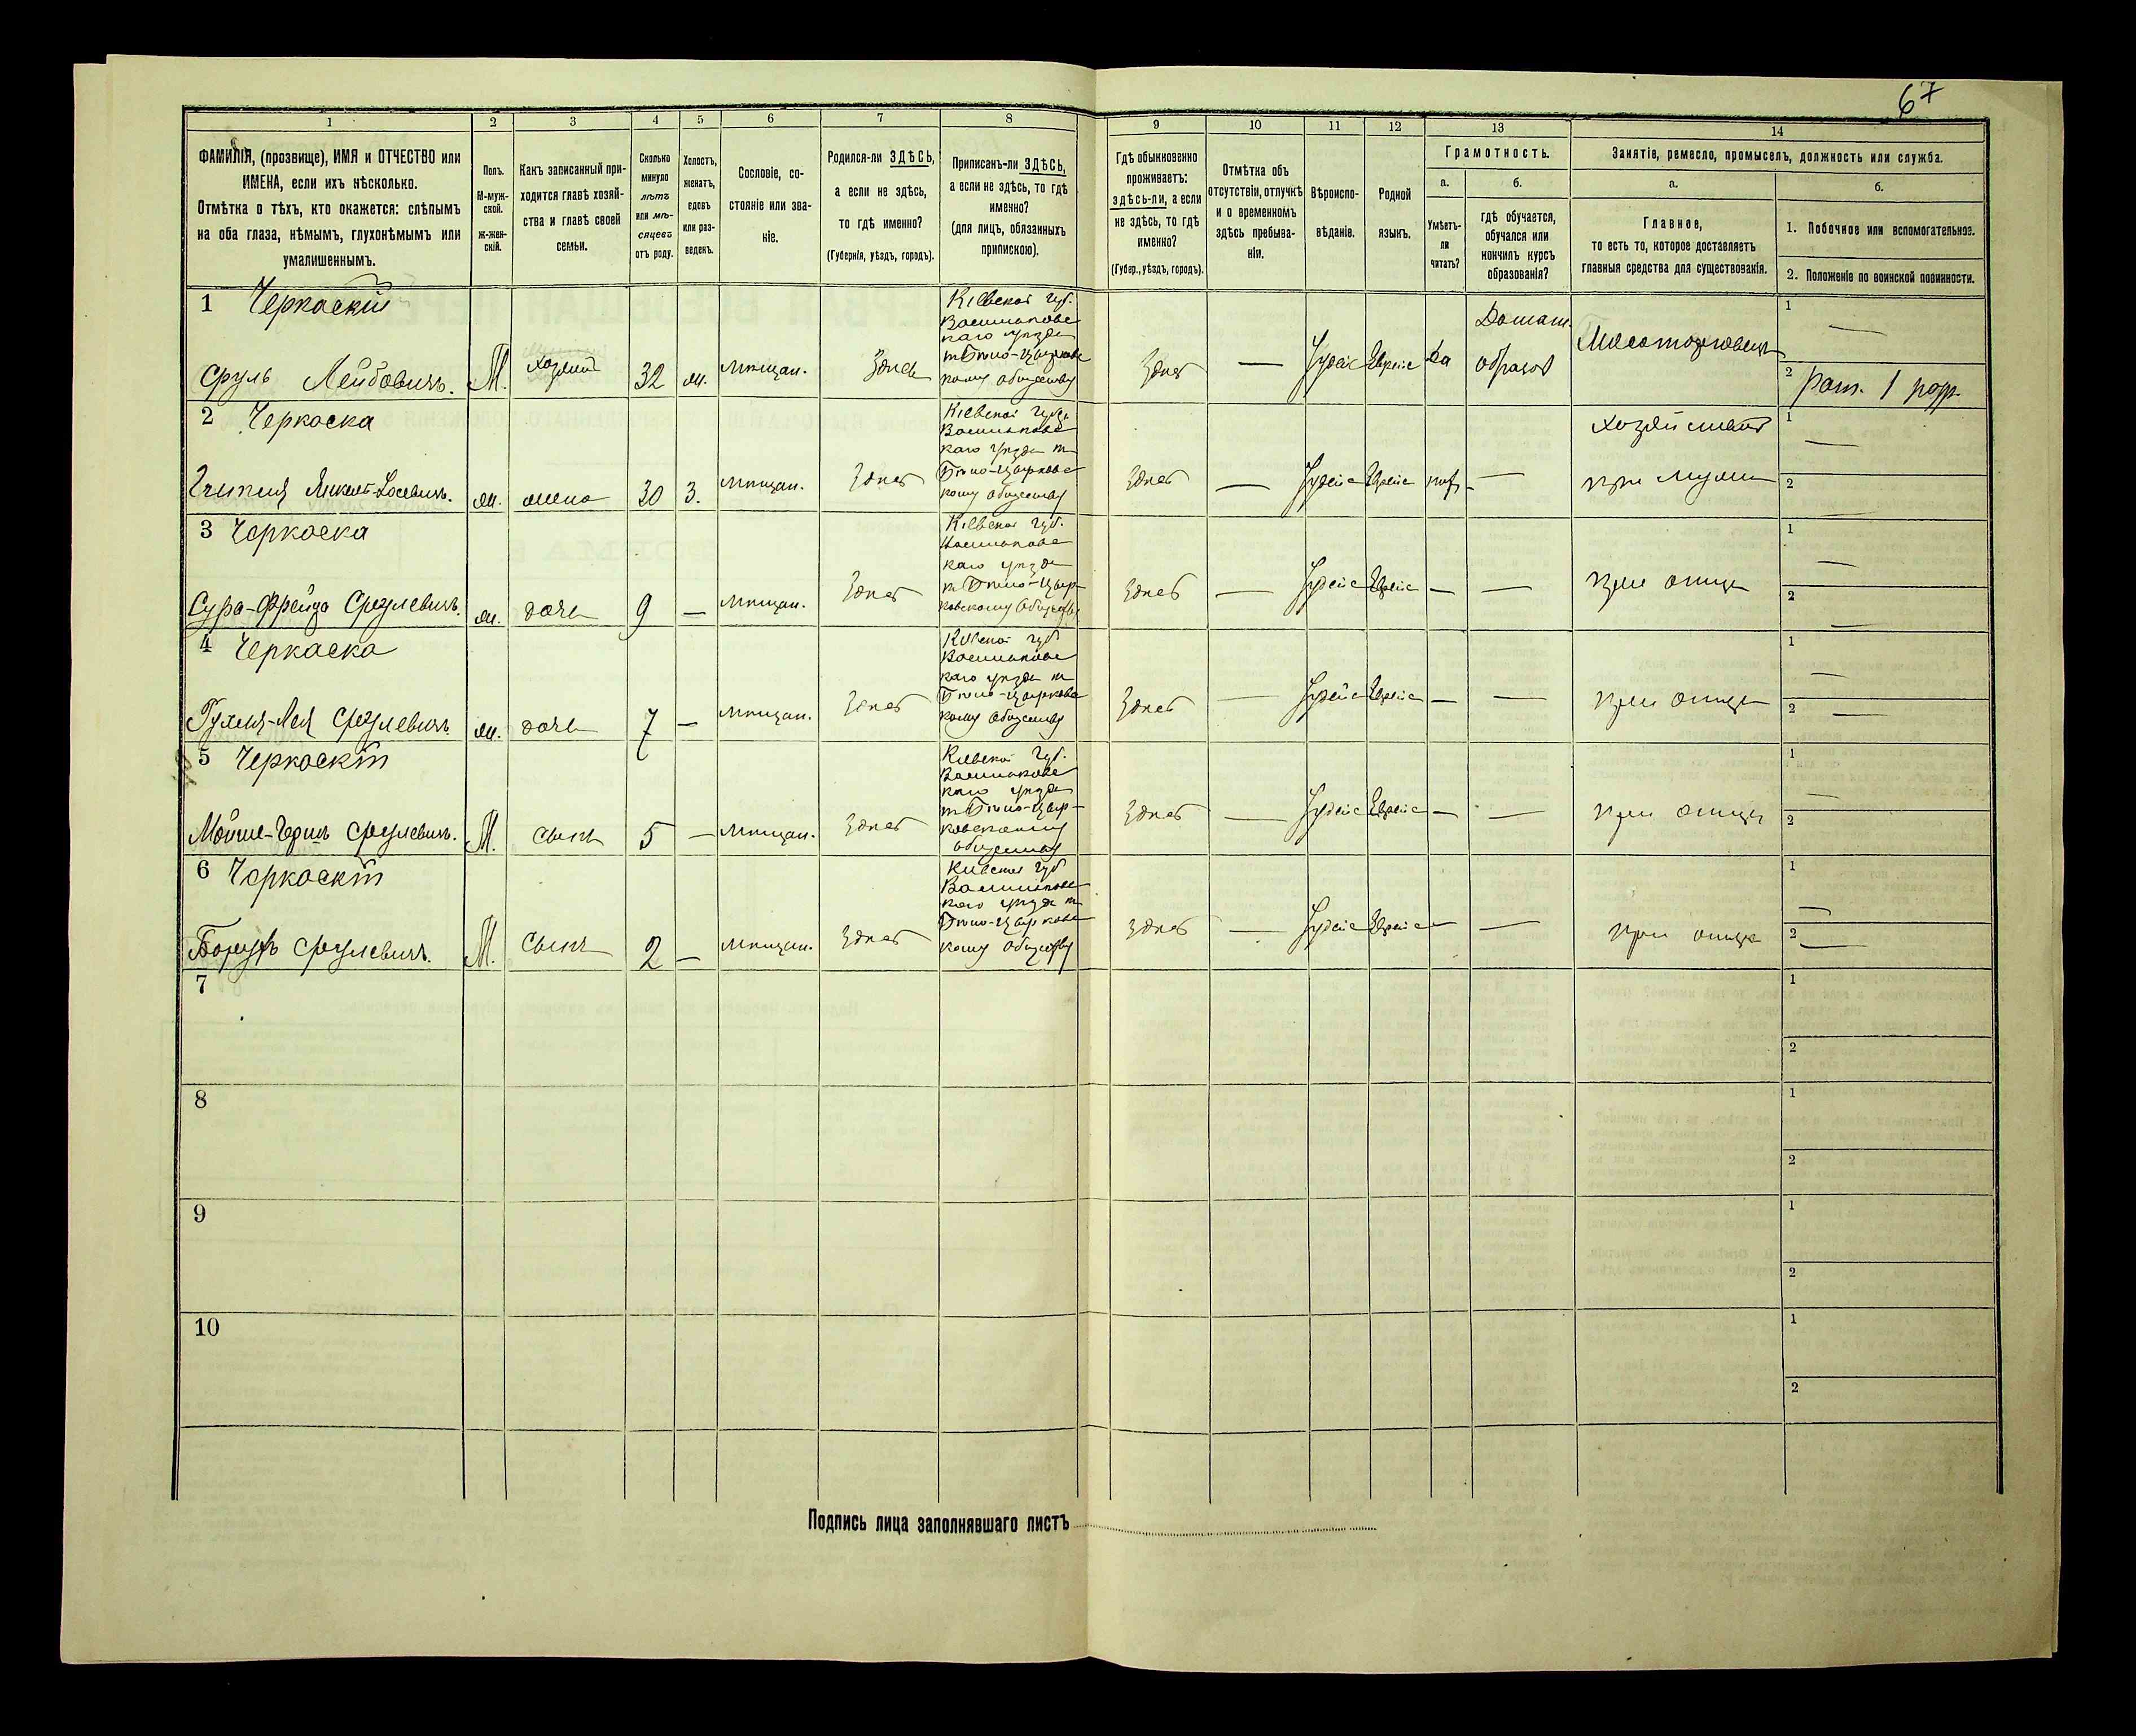 67
1 2 3 4 5 6 7 8 9 10 11 12 13 14
ФАМИЛІЯ, (прозвище), ИМЯ и ОТЧЕСТВО или
ИМЕНА, если ихъ нѣсколько.
Отмѣтка о тѣхъ, кто окажется: слѣпымъ
на оба глаза, нѣмымъ, глухонѣмымъ или
умалишеннымъ.
Полъ.
М-муж-
ской.
ж-жен-
скій.
Какъ записанный при-
ходится главѣ хозяй-
ства и главѣ своей
семьи.
Сколько
минуло
лѣтъ
или мѣ-
сяцевъ
отъ роду.
Холостъ,
женатъ,
вдовъ
или раз-
веденъ.
Сословіе, со-
стояніе или зва-
ніе.
Родился-ли ЗДѢСЬ,
а если не здѣсь,
то гдѣ именно?
(Губернія, уѣздъ, городъ).
Приписанъ-ли ЗДѢСЬ,
а если не здѣсь, то гдѣ
именно?
(для лицъ, обязанныхъ
припискою).
Гдѣ обыкновенно
проживаетъ:
здѣсь-ли, а если
не здѣсь, то гдѣ
именно?
(Губер., уѣздъ, городъ).
Отмѣтка объ
отсутствіи, отлучкѣ
и о временномъ
здѣсь пребыва-
ніи.
Вѣроиспо-
вѣданіе.
Родной
языкъ.
Грамотность.
а.
Умѣетъ-
ли
читать?
б.
гдѣ обучается,
обучался или
кончилъ курсъ
образованія?
Занятіе, ремесло, промыселъ, должность или служба.
а.
Главное,
то есть то, которое доставляетъ
главныя средства для существованія.
б.
1. Побочное или вспомогательное.
2. Положеніе по воинской повинности.
1 Черкаскій
Сруль Лейбовичъ.
М.
хозяинъ
32
ж.
мѣщан.
Здѣсь
Кіевской губ.
Васильковс
каго уѣзда
къ Бѣло-Церковс
кому обществу
Здѣсь
—
Іудейс
Еврейс
да
Домаш.
образов
Мясоторговецъ
1 —
2 рат. 1 разр.
2 Черкаска
Лосевичъ.
ж.
жена
30
З.
мѣщан.
Здѣсь
Кіевской губ.
Васильковс
каго уѣзда къ
Бѣло-Церковс
кому обществу
Здѣсь
—
Іудейс
Еврейс
нѣт
—
хозяйств
при мужи
1 —
2 —
3 Черкаска
Сура-Фрейда Срулевичъ.
ж.
дочь
9
—
мѣщан.
Здѣсь
Кіевской губ.
Васильковс
каго уѣзда
къ Бѣло-Цер-
ковскому обществу
Здѣсь
—
Іудейс
Еврейс
—
—
при отцѣ
1 —
2 —
4 Черкаска
Рухля-Лея Срулевичъ.
ж.
дочь
7
—
мѣщан.
Здѣсь
Кіевской губ
Васильковс
каго уѣзда къ
Бѣло-Церковс
кому обществу
Здѣсь
—
Іудейс
Еврейс
—
—
при отцѣ
1 —
2 —
5 Черкаскій
Мойше-Герш Срулевичъ.
М.
сынъ
5
—
мѣщан.
Здѣсь
Кіевской губ.
Васильковс
каго уѣзда
къ Бѣло-Цер-
ковскому
обществу
Здѣсь
—
Іудейс
Еврейс
—
—
при отцѣ
1 —
2
6 Черкаскій
Борухъ Срулевичъ.
М.
Сынъ
2
—
мѣщан.
Здѣсь
Кіевской губ
Васильковс
каго уѣзда къ
Бѣло-Церковс
кому обществу
Здѣсь
—
Іудейс
Еврейс
—
—
при отцѣ
1 —
2 —
7
1
2
8
1
2
9
1
2
10
1
2
Подпись лица заполнявшаго листъ